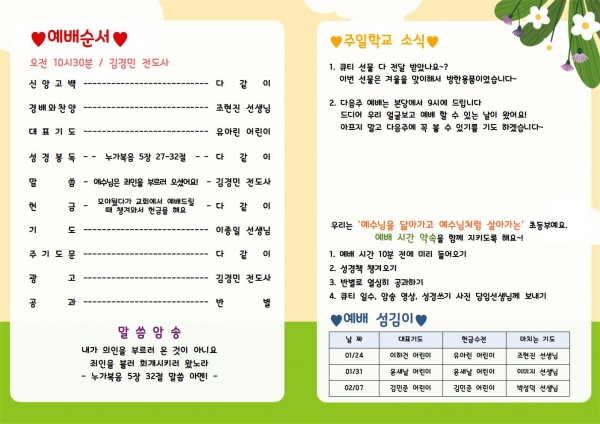 ♥예배순서♥
오전 10시30분 / 김경민 전도사
신앙고백 ------------------------------ 다 같 이
경배와찬양 ------------------------------ 조현진 선생님
대표기도 ------------------------------ 유아린 어린이
성경봉독 -- 누가복음 5장 27-32절 -- 다 같 이
말 씀 -예수님은 죄인을 부르러 오셨어요!- 김경민 전도사
헌 금 - 모아뒀다가 교회에서 예배드릴
때 챙겨와서 헌금을 해요 - 다 같 이
기 도 ------------------------------ 이종일 선생님
주기도문 ------------------------------ 다 같 이
광 고 ------------------------------ 김경민 전도사
공 과 ------------------------------ 반 별
말씀암송
내가 의인을 부르러 온 것이 아니요
죄인을 불러 회개시키러 왔노라
- 누가복음 5장 32절 말씀 아멘! -
♥주일학교 소식♥
1. 큐티 선물 다 전달 받았나요~?
이번 선물은 겨울을 맞이해서 방한용품이었습니다~
2. 다음주 예배는 본당에서 9시에 드립니다
드디어 우리 얼굴보고 예배 할 수 있는 날이 왔어요!
아프지 말고 다음주에 꼭 볼 수 있기를 기도 하겠습니다~
우리는 '예수님을 닮아가고 예수님처럼 살아가는' 초등부예요.
예배 시간 약속을 함께 지키도록 해요~!
1. 예배 시간 10분 전에 미리 들어오기
2. 성경책 챙겨오기
3. 반별로 열심히 공과하기
4. 큐티 일수, 암송 영상, 성경쓰기 사진 담임선생님께 보내기
♥예배 섬김이♥
날 짜 대표기도 헌금수전 마치는 기도
01/24 이하건 어린이 유아린 어린이 조현진 선생님
01/31 윤새날 어린이 윤새날 어린이 이미지 선생님
02/07 김민준 어린이 김민준 어린이 박성덕 선생님